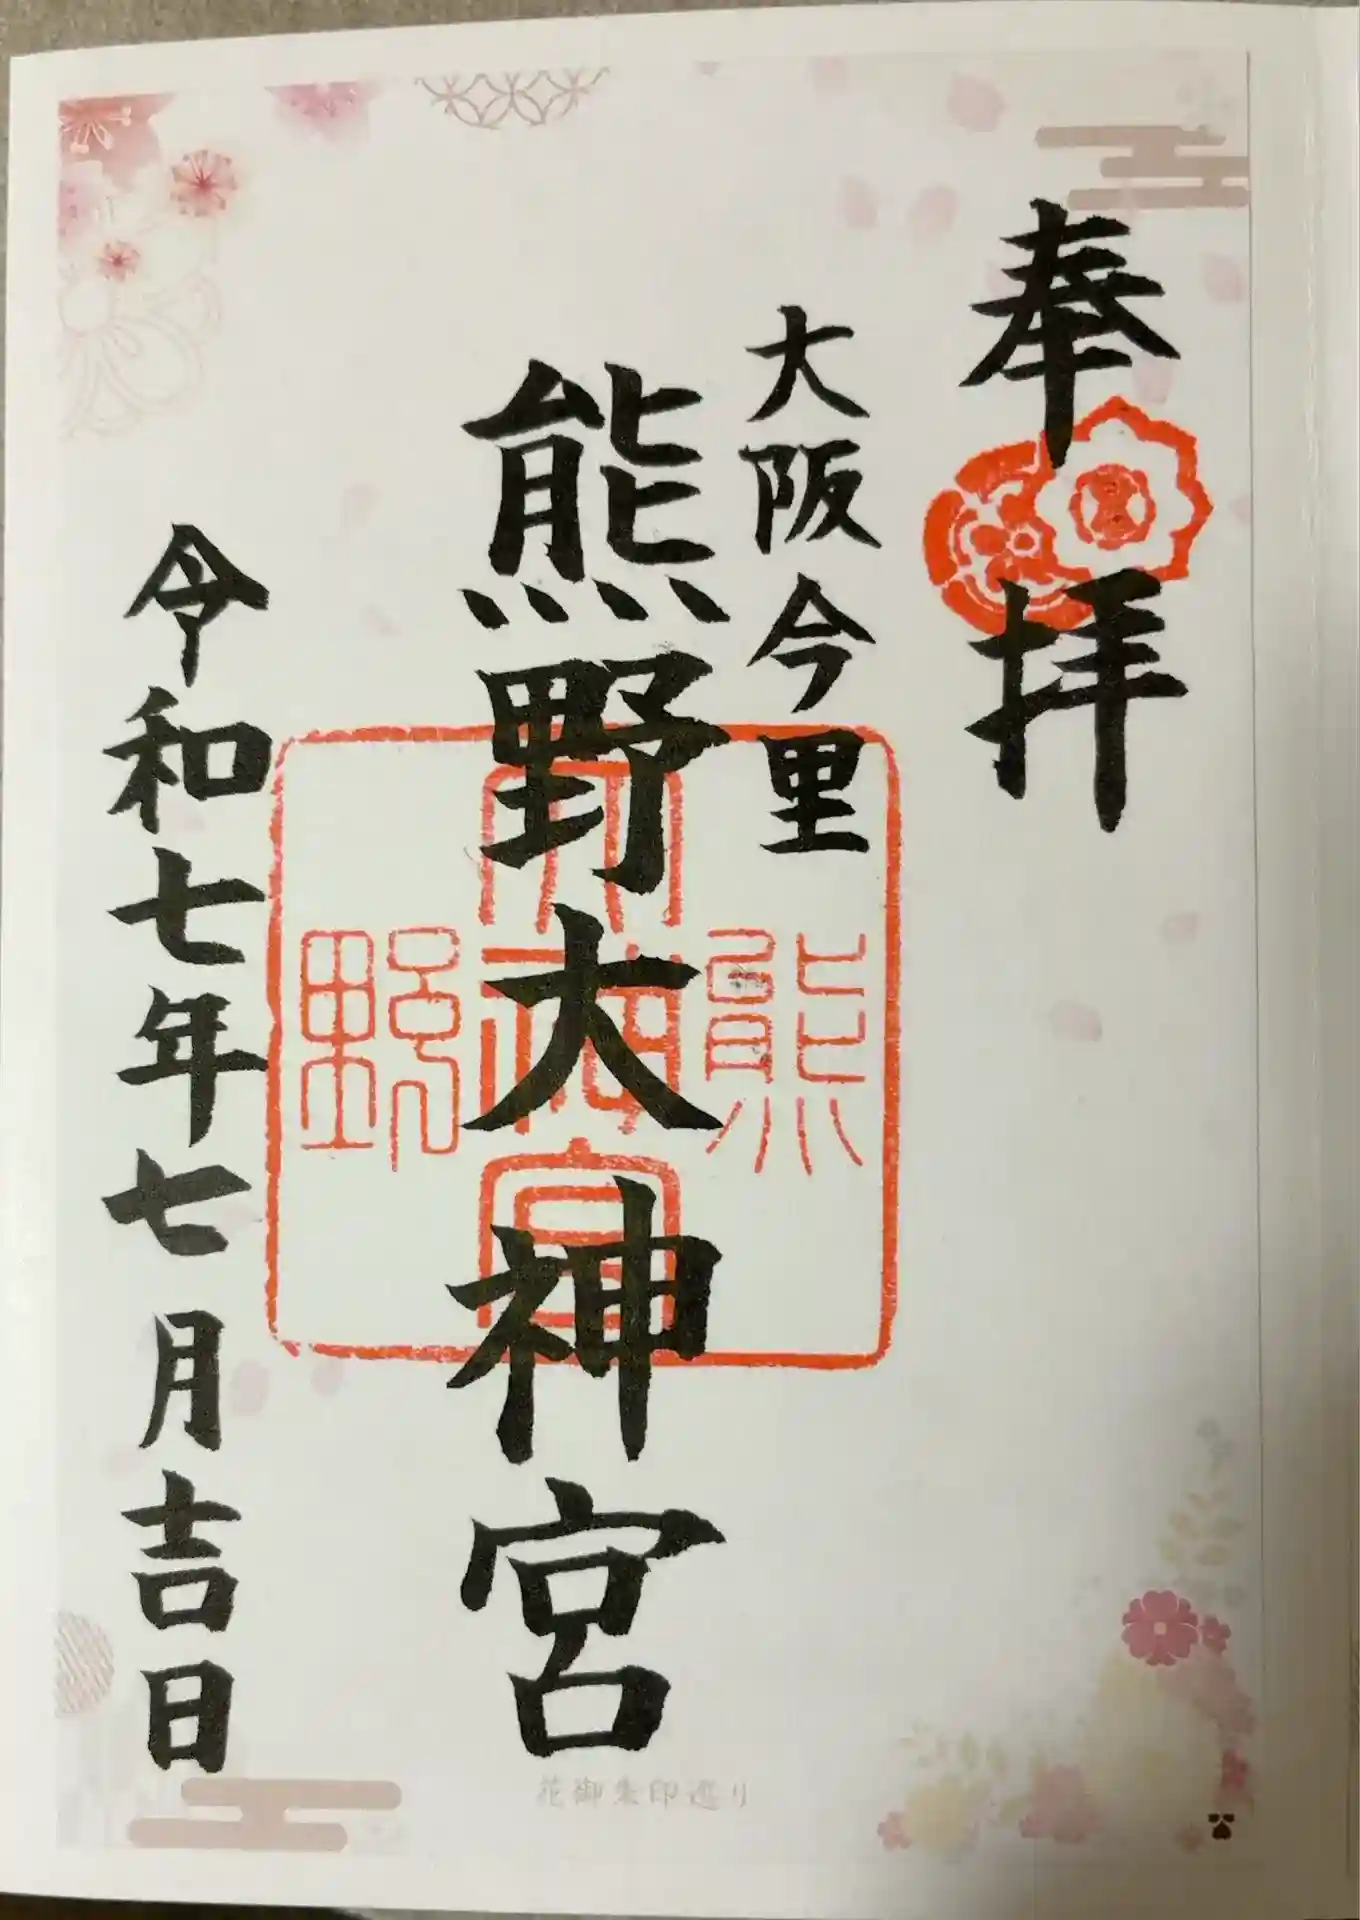 奉拝
大阪今里
熊野大神宮
令和七年七月吉日
熊野
大神宮
花御朱印巡り